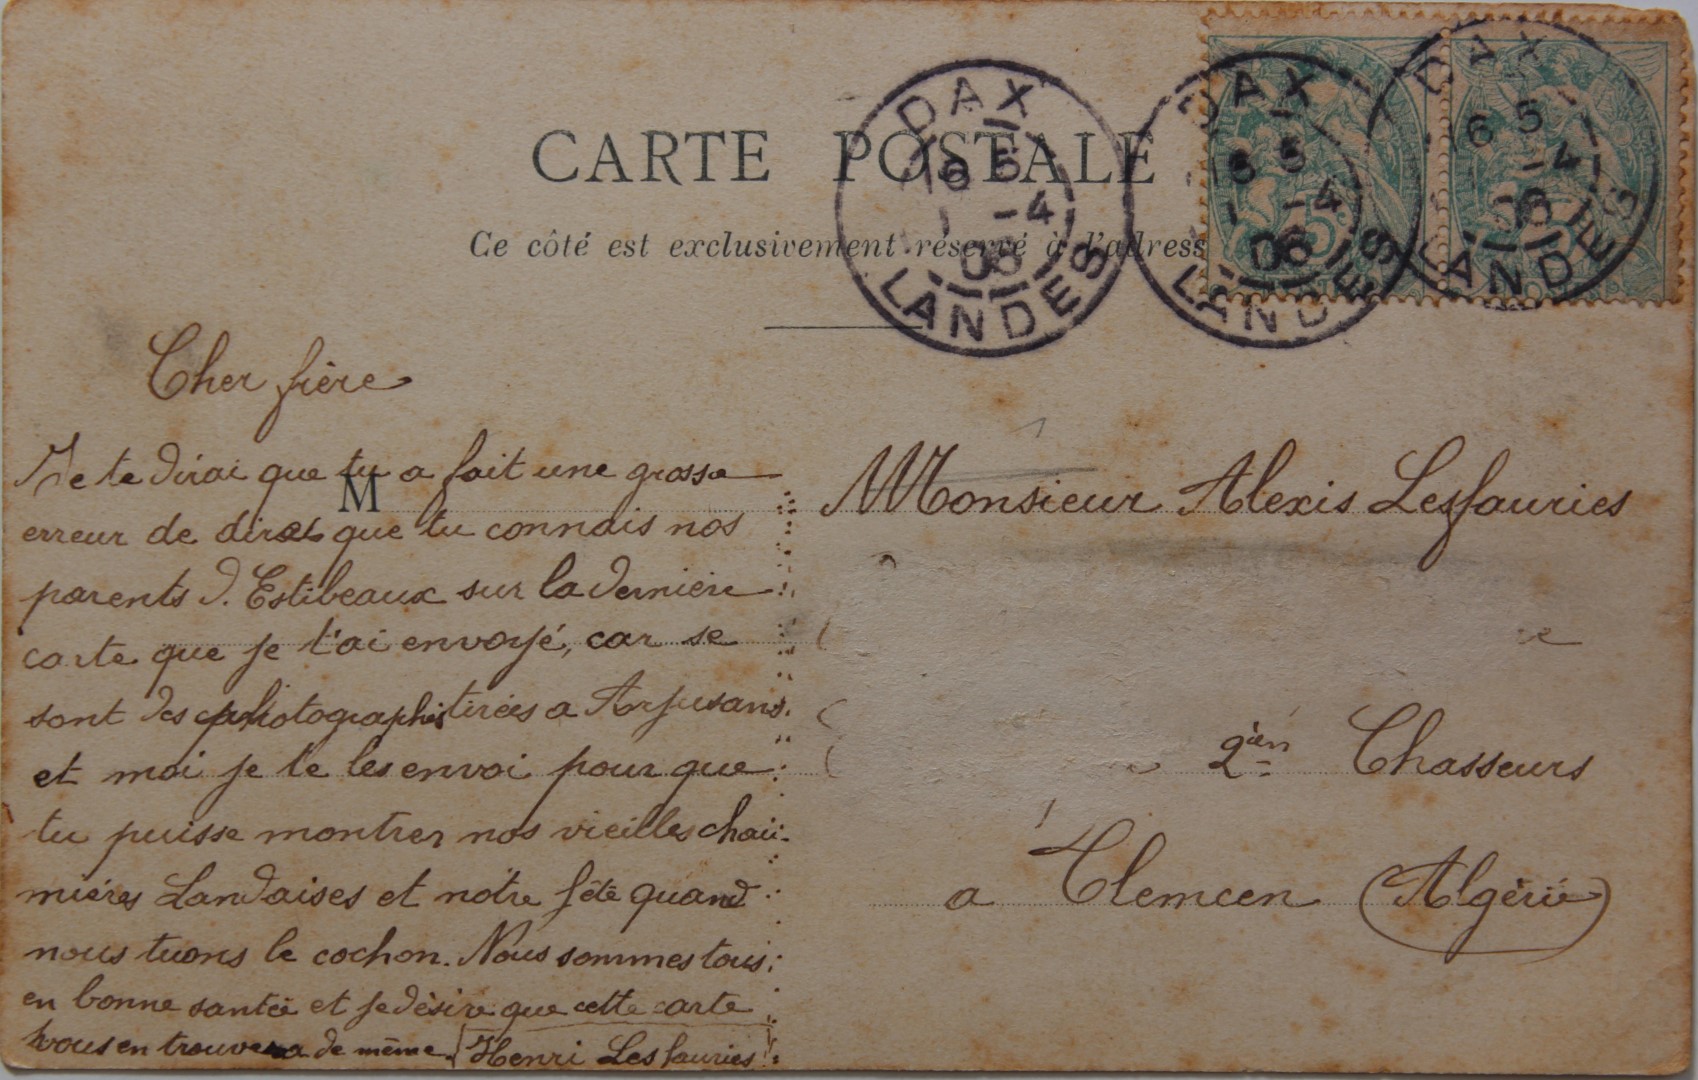 CARTE POSTALE
Ce côté est exclusivement réservé à l'adress
DAX
6 5
-4
06
LANDES
DAX
6 5
-4
06
LANDES
DAX
6 5
-4
06
LANDES
Cher frère
Je te dirai que tu a fait une grosse
erreur de dire que tu connais nos
parents d'Estibeaux sur la dernière
carte que je t'ai envoyé, car se
sont des photographies tirées a Arjusans.
et moi je te les envoi pour que
tu puisse montrer nos vieilles chau-
mières Landaises et nôtre fête quand
nous tuons le cochon. Nous sommes tous
en bonne santée et je désire que cette carte
vous en trouvera de même. Henri Lesfauries
M
Monsieur Alexis Lesfauries
2ièm Chasseurs
a Tlemcen (Algérie)